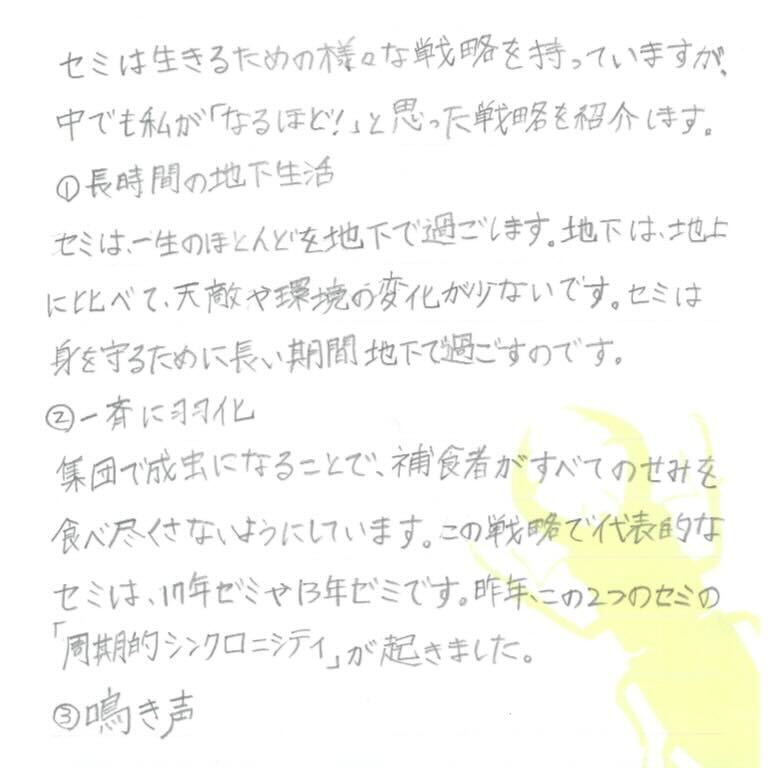 セミは生きるための様々な戦略を持っていますが、
中でも私が「なるほど!」と思った戦略を紹介します。
①長時間の地下生活
セミは、一生のほとんどを地下で過ごします。地下は、地上
に比べて、天敵や環境の変化が少ないです。セミは
身を守るために長い期間地下で過ごすのです。
②一斉に羽化
集団で成虫になることで、補食者がすべてのせみを
食べ尽くさないようにしています。この戦略で代表的な
セミは、17年ゼミや13年ゼミです。昨年、この2つのセミの
「周期的シンクロニシティ」が起きました。
③鳴き声